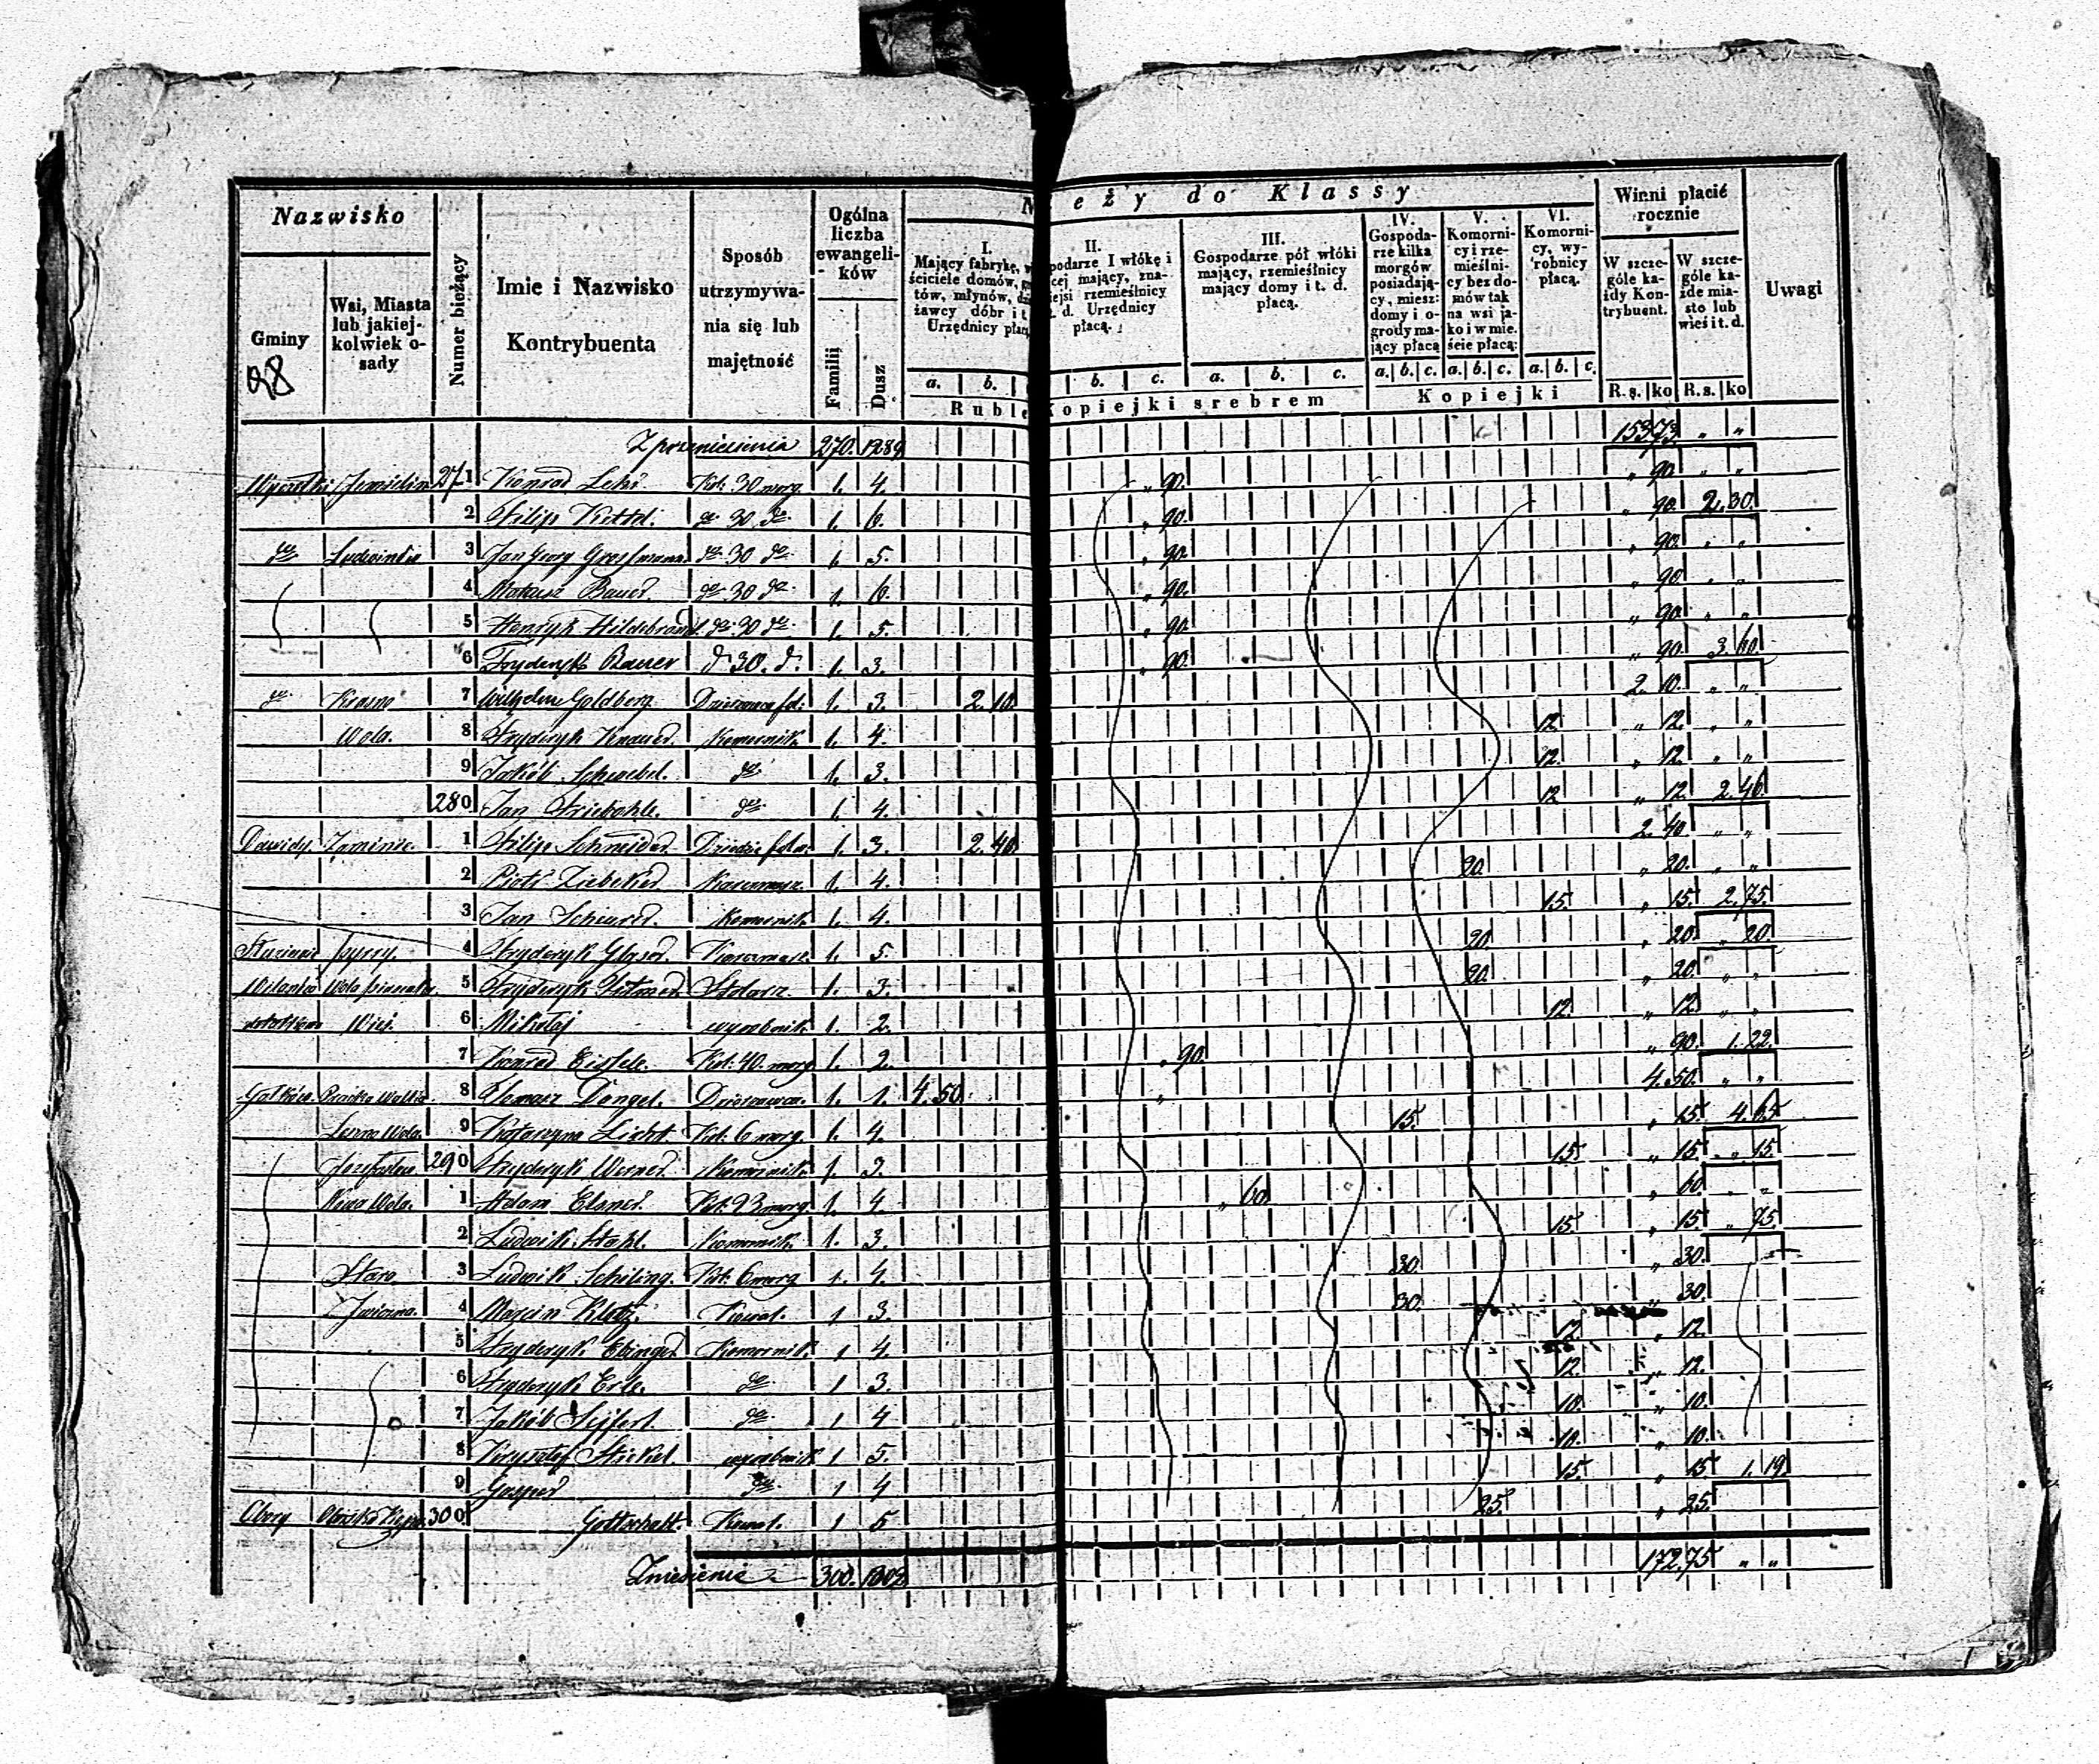 Nazwisko
Gminy
Wsi, Miasta lub jakiej-kolwiek o-sady
Numer bieżący
Imie i Nazwisko Kontrybuenta
Sposób utrzymywa-nia się lub majętność
Ogólna liczba ewangeli-ków
Familij
Dusz
eży do Klassy
I. Mający fabrykę, ściciele domów, tów, młynów, żawcy dóbr i t Urzędnicy płac
II. podarze 1 włókę i cej mający, zna- iejsi rzemieślnicy . d. Urzędnicy płacą.
III. Gospodarze pół włóki mający, rzemieślnicy mający domy i t. d. płacą.
IV. Gospoda-rze kilka morgów posiadają-cy, miesz: domy i o-grody ma-jący płacą
V. Komorni-cy i rze-mieślni-cy bez do-mów tak na wsi ja-ko i w mie.ście płacą:
VI. Komorni-cy, wy-robnicy płacą.
Winni płacić rocznie
W szcze-góle ka-żdy Kon-trybuent.
W szcze-góle ka-żde mia-sto lub wieś i t. d.
Uwagi
a. b. b. c. a. b. c. a. b. c. a. b. c. a. b. c.
Ruble Kopiejki srebrem
Kopiejki
R.s. ko R.s. ko
98
Z przeniesienia 270. 153 73 " "
271 Konrad Lehr Kol: 30 morg. 1. 4. " 90. " 90. " "
2 Filip Kittel do 30 do 1. 6. " 90. " 90 2. 30.
do Ludwinów 3 Jan Georg Grossmann do 30 do 1. 5. " 90. " 90. " "
4 Bauer. do 30 do 1. 6. " 90. " 90 " "
5 Henryk Hildebrandt do 30 do 1. 5. " 90. " 90. " "
6 Fryderyk Bauer d 30. d. 1. 3. " 90. " 90. 3. 60
do Krasna 7 Wilhelm Goldberg Dzierżawca fol: 1. 3. 2. 10. 2. 10. " "
Wola. 8 Fryderyk Knauer. Komornik 1. 4. 12. " 12. " "
9 Jakób Schwebel. do 1. 3. 12. " 12. " "
280 Jan do 1. 4. 12 " 12. 2. 46
Dawidy Zamienie. 1 Filip Schneider 1. 3. 2. 40. 2. 40 " "
2 Piotr Karczmarz. 1. 4. 20. " 20. " "
3 Jan Komornik 1. 4. 15. " 15. 2. 75.
4 Fryderyk Glaser. Karczmarz. 1. 5. 20. " 20. " 20
5 Fryderyk Stolarz. 1. 3. 20. " 20. " "
Wieś. 6 Mikołaj wyrobnik 1. 2. 12. " 12. " "
7 Konrad Eisele. Kol. 40. morg 1. 2. " 90. " 90. 1. 22.
8 Tomasz Dongel. Dzierżawca. 1. 1. 4. 50. 4. 50. " "
Wola. 9 Katarzyna Licht. Kol: 6 morg. 1. 4. 15. " 15. 4. 65
290 Fryderyk Werner. Komornik 1. 3. 15. " 15. " 15.
Nowa Wola. 1 Adam Elsner. Kol. 23 morg. 1. 4. " 60. " 60 " "
2 Ludwik Stahl. Komornik 1. 3. 15. " 15. " 75
Stara 3 Ludwik Schiling. Kol: 6 morg 1. 4. 30. " 30.
Iwiczna. 4 Marcin Klotz. Kowal. 1 3. 30. " 30.
5 Fryderyk Ebinger. Komornik 1 4. 12 " 12.
6 Fryderyk Erle. do 1 3. 12. " 12.
7 Jakób Sejfert. do 1 4 10. " 10.
8 Krysztof Stickel. wyrobnik 1 5. 10. " 10.
9 Gasper do 1 4 15. " 15 1. 19.
Obory 300 Gottschalk. Kowal. 1 5 25. " 25.
Zniesienie 300. 172 75 " "